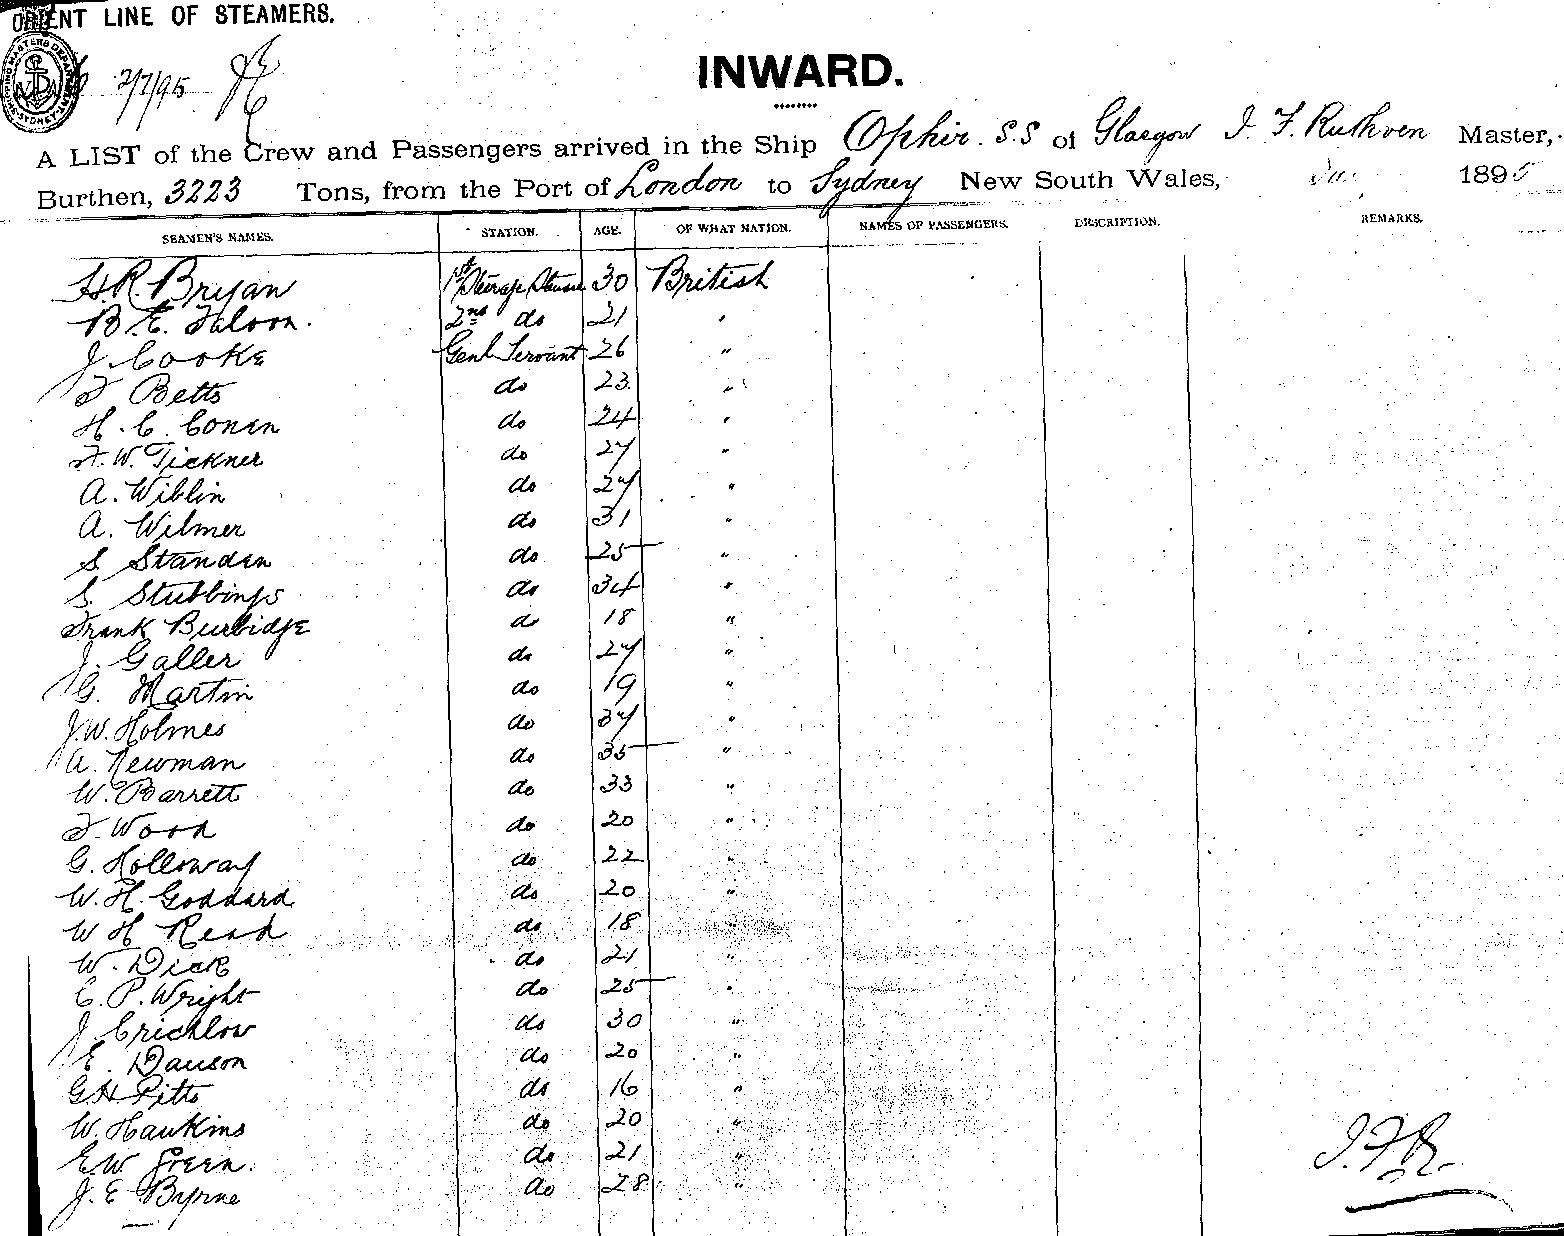 ORIENT LINE OF STEAMERS.
7/7/95
INWARD.
A LIST of the Crew and Passengers arrived in the Ship Ophir. S.S of Glasgow J. F. Ruthven Master,
Burthen, 3223 Tons, from the Port of London to Sydney New South Wales, 1895
SEAMEN'S NAMES. STATION. AGE. OF WHAT NATION. NAMES OF PASSENGERS. DESCRIPTION. REMARKS.
H.R. Bryan 1st Steerage 30 British
B. E. 2nd do 21 "
J. Cooke Genl Servant 26 "
F Betts do 23 "
H. C. Conen do 24 "
F. W. Tickner do 27 "
A. Wiblin do 27 "
A. Wilmer do 31 "
S Standen do 25 "
S. Stubbings do 34 "
Frank Burbidge do 18 "
J. Galler do 27 "
G. Martin do 19 "
J.W. Holmes do 37 "
A. Newman do 35 "
W. Barrett do 33 "
F. Wood do 20 "
G. Holloway do 22 "
W. H. Goddard do 20 "
W H Read do 18 "
W. Dick do 21 "
E. P. Wright do 25 "
J. Crichlow do 30 "
E. Dawson do 20 "
G H Pitts do 16 "
W. Hawkins do 20 "
E.W Green. do 21 "
J. E Byrne do 28 "
J.F.R.